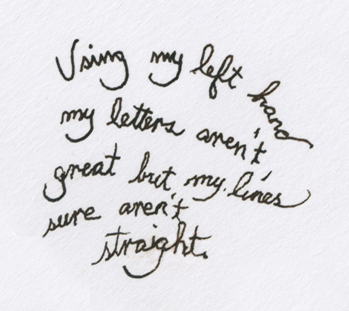 Using my left hand
my letters aren't
great but my lines
sure aren't
straight.